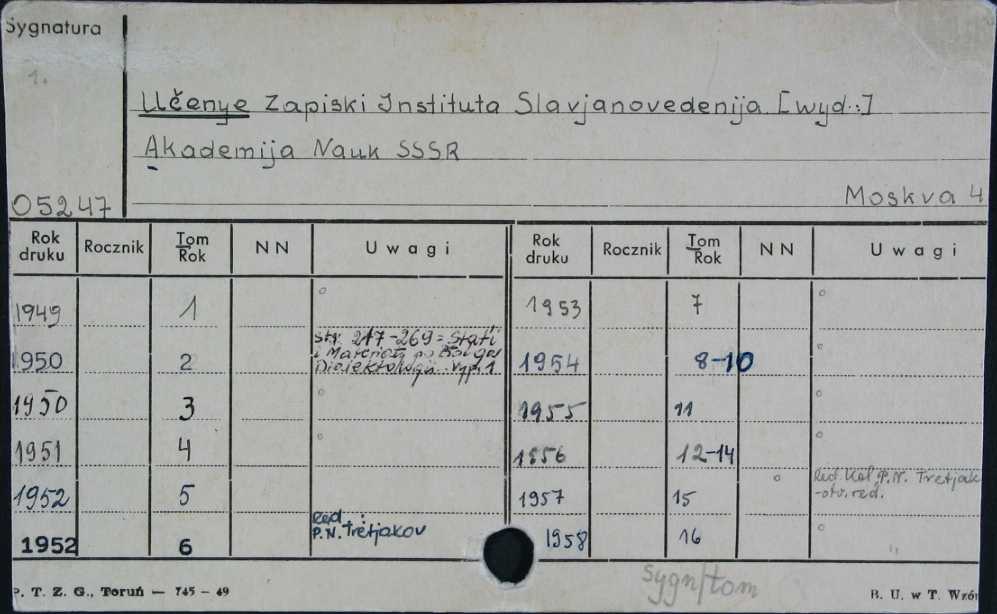 Sygnatura
1.
Učenye Zapiski Instituta Slavjanovedenija [wyd.:]
Akademija Nauk SSSR
05247 Moskva 4
Rok druku Rocznik Tom Rok N N Uwagi Rok druku Rocznik Tom Rok N N Uwagi
1949 1 1953 7
1950 2 str. 217-269 = Stat'i 1954 8-10
i Mater. po Bolgar
Dialektologii. Vyp. 1
1950 3 1955 11
1951 4 1956 12-14
1952 5 1957 15 Red. Kol. P.N. Tretjak
-otv. red.
1952 6 Red.: 1958 16
P.N. Tretjakov
sygn/tom
P. T. Z. G., Toruń — 745 – 49 B. U. w T. Wzór